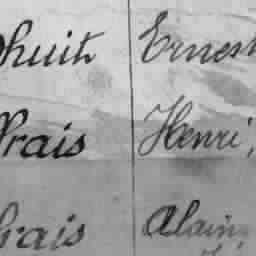 huit Ernest
Vrais Henri,
Vrais Alain,